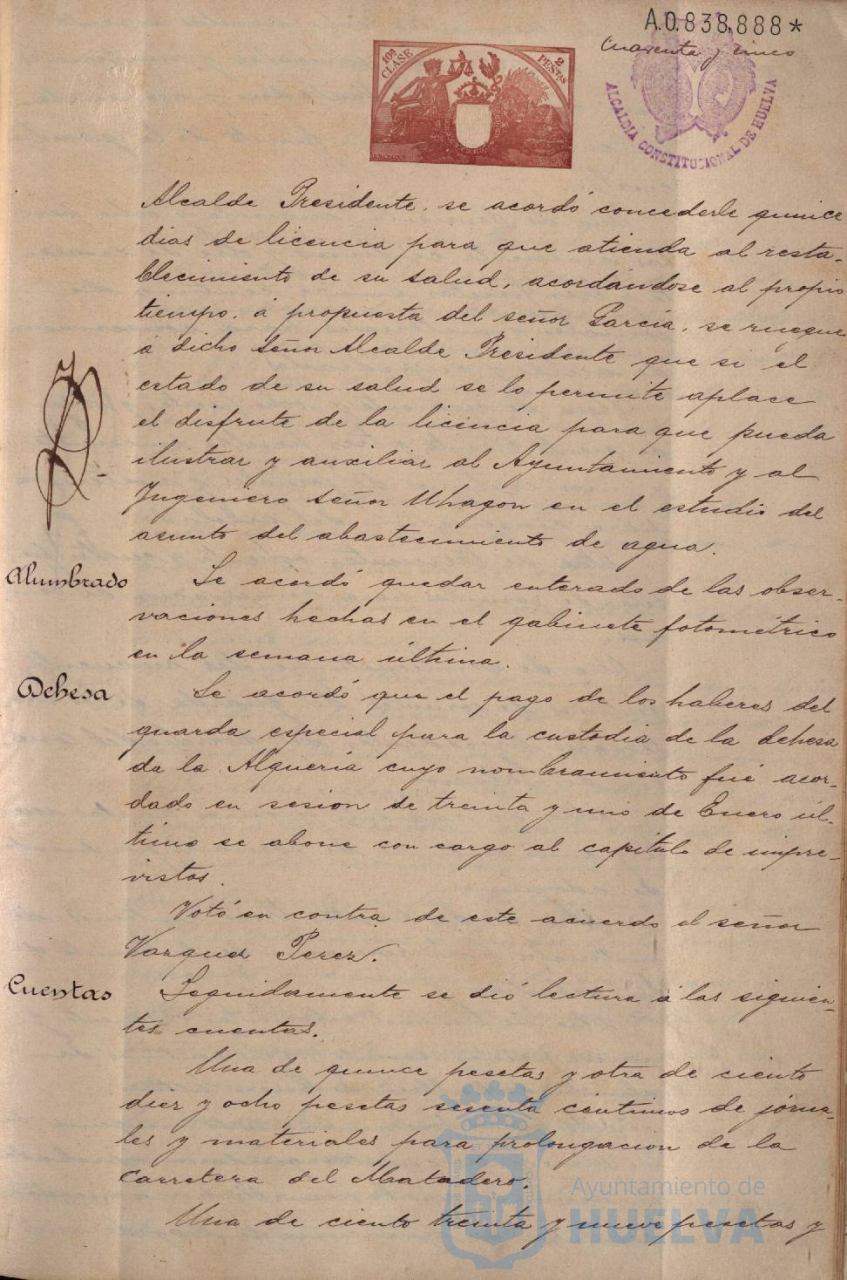 A.0.838.888*
Cuarenta y cinco
10ª CLASE
2 PESTAS
ALCALDIA CONSTITUCIONAL DE HUELVA
Alcalde Presidente, se acordó concederle quince
dias de licencia para que atienda al resta-
blecimiento de su salud, acordándose al propio
tiempo, á propuesta del señor García, se ruegue
á dicho Señor Alcalde Presidente que si el
estado de su salud se lo permite aplace
el disfrute de la licencia para que pueda
ilustrar y auxiliar al Ayuntamiento y al
Ingeniero Señor Uhagon en el estudio del
asunto del abastecimiento de agua.
Alumbrado
Se acordó quedar enterado de las obser-
vaciones hechas en el gabinete fotométrico
en la semana última.
Dehesa
Se acordó que el pago de los haberes del
guarda especial para la custodia de la dehesa
de la Alquería cuyo nombramiento fué acor-
dado en sesion de treinta y uno de Enero úl-
timo se abone con cargo al capítulo de impre-
vistos.
Votó en contra de este acuerdo el señor
Vazquez Perez.
Cuentas
Seguidamente se dió lectura á las siguien-
tes cuentas.
Una de quince pesetas y otra de ciento
diez y ocho pesetas sesenta céntimos de jorna-
les y materiales para prolongacion de la
carretera del Matadero.
Una de ciento treinta y nueve pesetas y
Ayuntamiento de
HUELVA